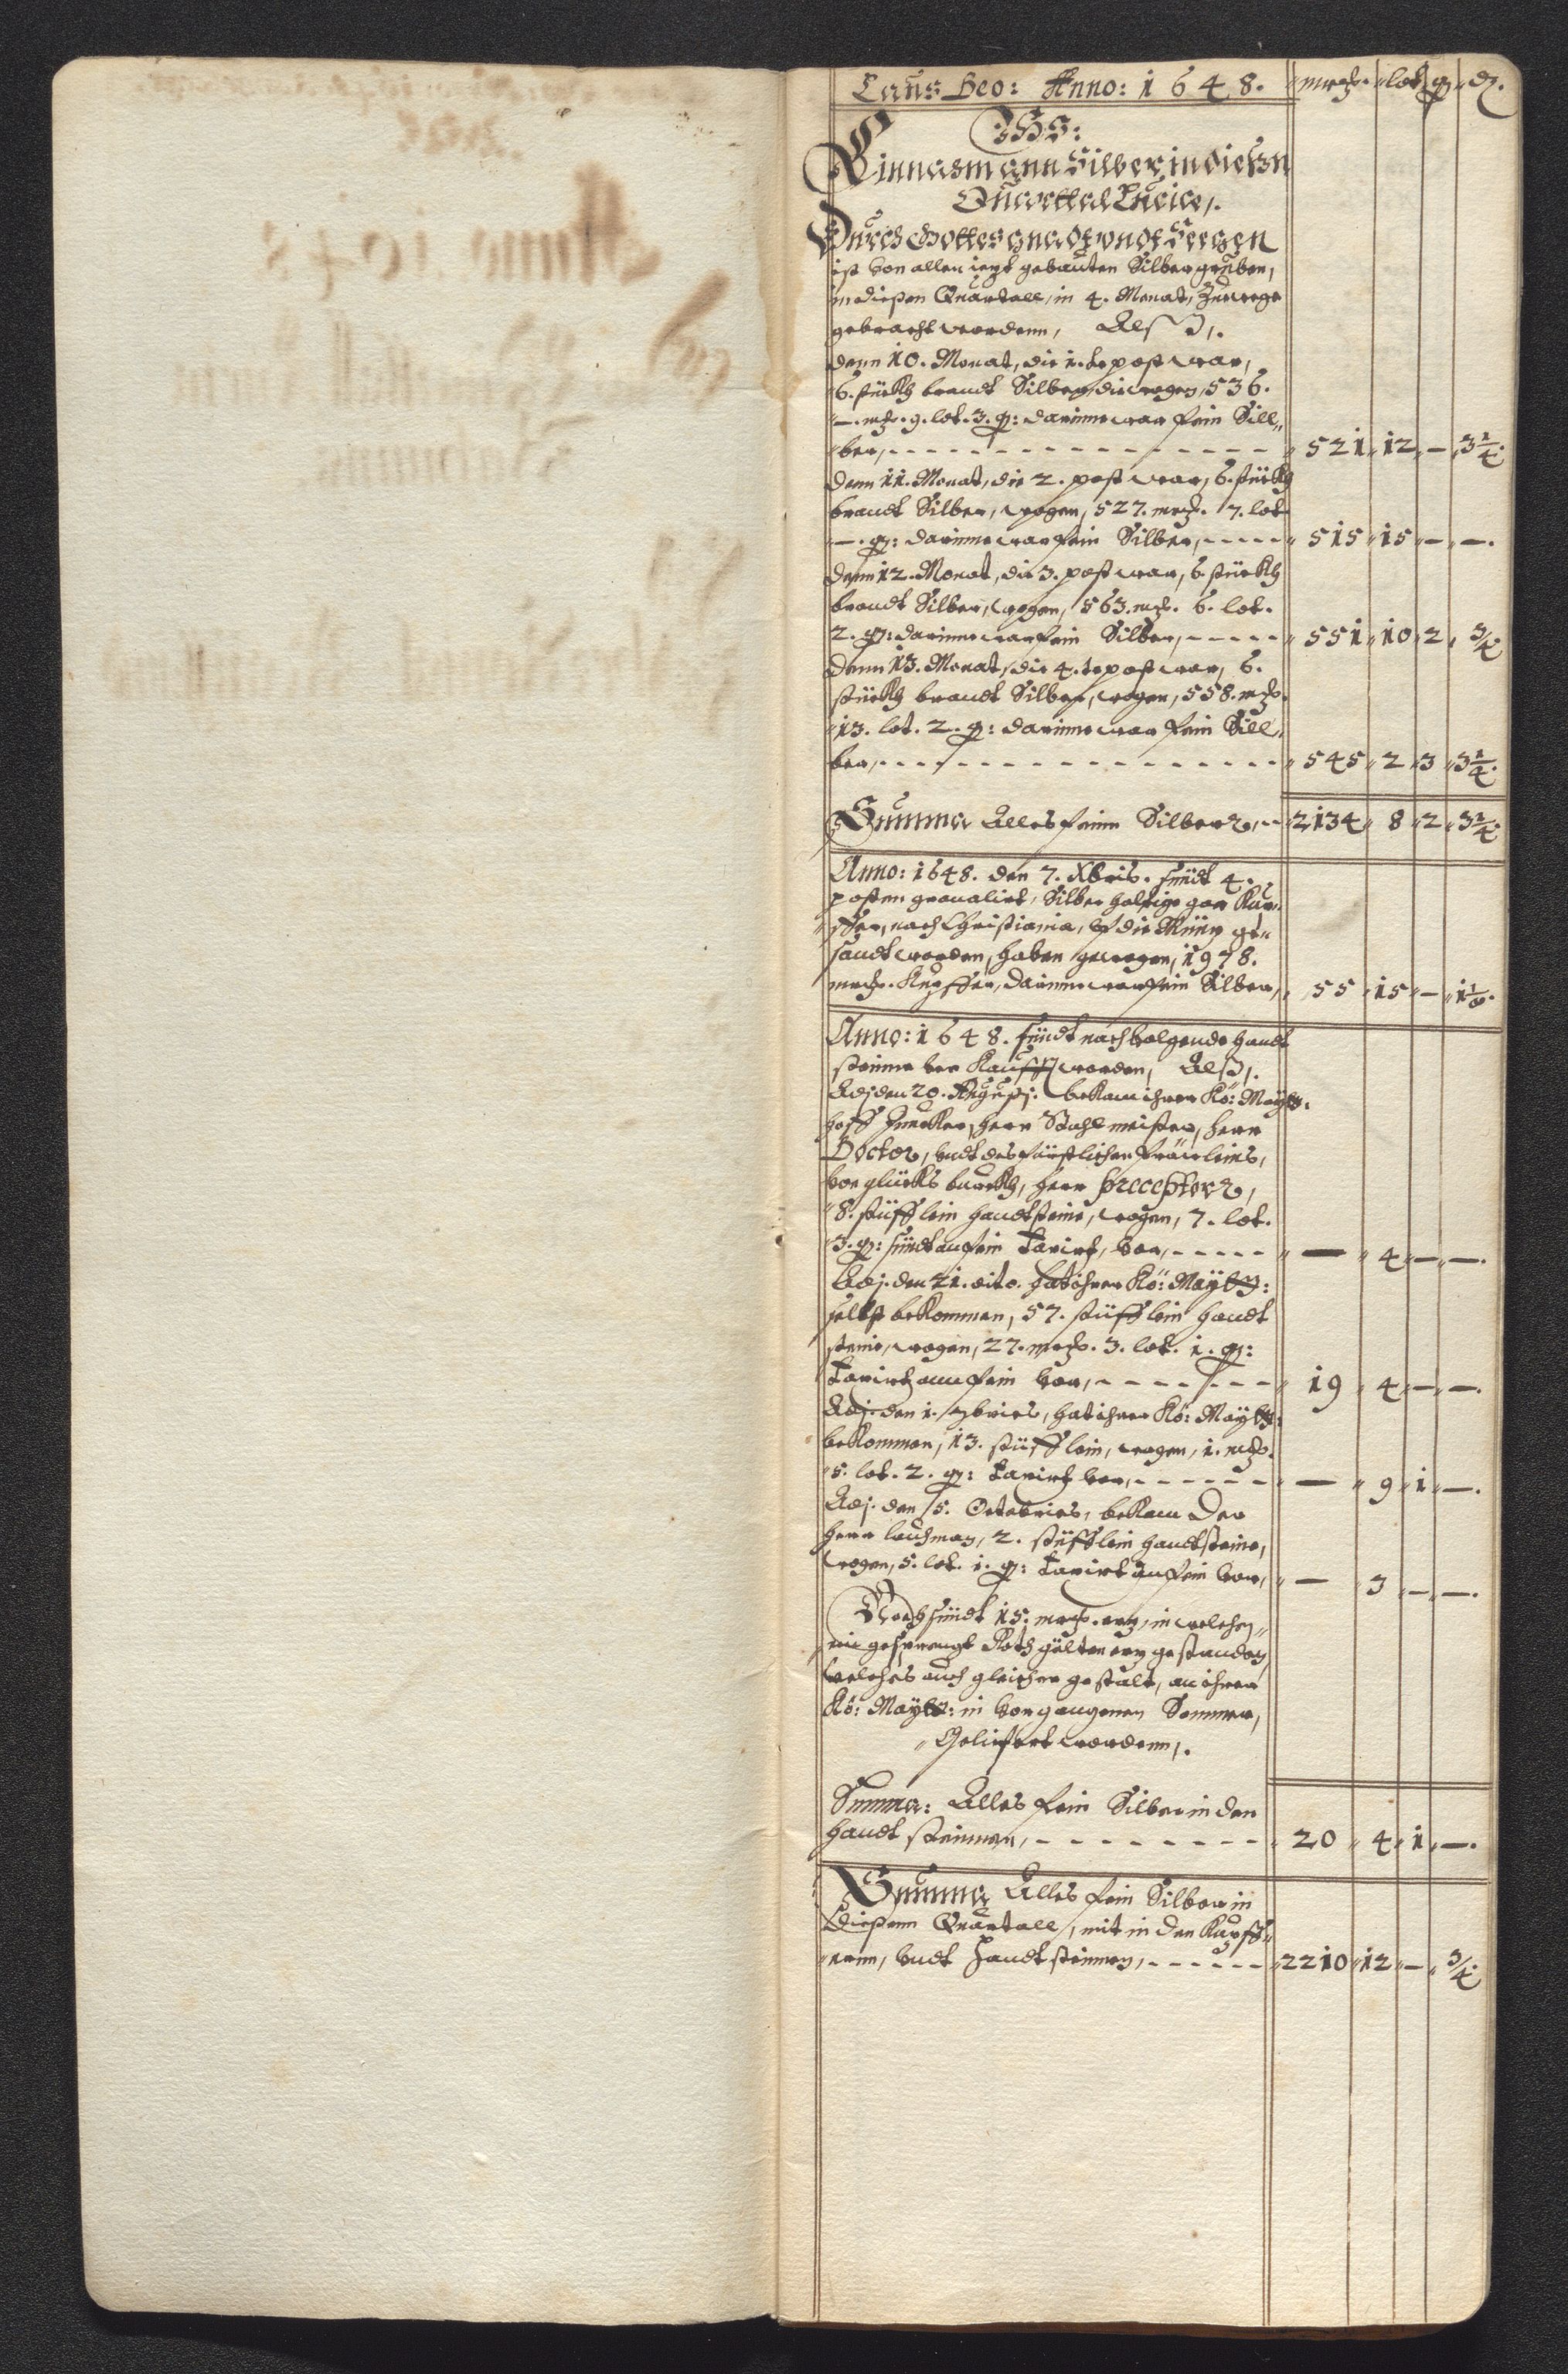 Laus Deo: Anno: 1648. mrck. lot q d.
IHS:
Einnahm ann Silber in dießn
Quarttal Luciæ,.
Durch Gottes gnadt vndt Seegen
ist von allen ietzt gebauten Silber gruben,
in dießen Quartall, in 4. Monat, Zuwege
gebracht wordenn, Alß,.
Denn 10. Monat, die 1. te post war,
6. stückh brandt Silber, die wogen, 536.
—. mrk. 9. lot. 3. q: darinne war fein Sill„
ber, - - - - - 521 12 — 3 1/4.
Denn 11. Monat, die 2. post war, 6. stückh
brandt Silber, wogen, 527. mrck. 7. lot
—. q: darinne war fein Silber, - - - - - 515 15 — —.
Denn 12. Monat, die 3. post war, 6. stückh
brandt Silber, wogen, 563. mrk. 6. lot.
2. q: darinne war fein Silber, - - - - - 551 10 2 3/4.
Denn 13. Monat, die 4. te post war, 6.
stückh brandt Silber, wogen, 558. mrk.
13. lot. 2. q: darinne war fein Sill„
ber, - - - - - 545 2 3 3 1/4.
Summa Alles feinn Silberr, - - 2134 8 2 3 1/4.
Anno: 1648. den 7. Xbris. sindt 4.
posten granalirt, Silber haltige gar Kup„
ffer, nach Christiania, vf die Müntz ge„
sandt worden, haben gewogen, 1978.
mrck. Kupffer, darinne war fein Silber, 55 15 — 1 1/8.
Anno: 1648. sindt nachvolgende handt
steinne ver Kaufft worden, Alß,.
Adj. den 20. Augusti. bekam ihrer Kö: Maytt:
hoff Juncker, herr Stahlmeister, herr
Doctor, vndt des fürstlichen fräwleins,
von glücks burckh, herr preceptorr,
8. stüfflein handtsteine, wogen, 7. lot.
3. q: sindt an fein taxirt, vor, - - - - - — 4 — —.
Adj. den 21. dito. hat ihrer Kö: Maytt:
selbst bekommen, 57. stüfflein handt
steine, wogen, 27. mrck. 3. lot. 1. q:
taxirt ann fein vor, - - - - - 19 4 — —.
Adj. den 1. 7bries, hat ihrer Kö: Maytt:
bekommen, 13. stüfflein, wogen, 1. mrk.
5. lot. 2. q: taxirt vor, - - - - - — 9 1 —.
Adj. den 5. Octobries, bekam Der
herr lauhman, 2. stüfflein handtsteine,
wogen, 5. lot. 1. q: taxirt an fein vor, — 3 — —.
Noch sindt 15. mrck. ertz, in welchen
ein gesprengt Roth gülten ertz gestanden,
welches auch gleicher gestalt, an ihrer
Kö: Maytt: in vorgangenen Sommer,
Geliefert wordenn,.
Summa: Alles fein Silber in den
handt steinnen, - - - - - 20 4 1 —.
Summa Alles fein Silber in
Dießenn Quartall, mit in den Kupff„
ernn, vndt Handt steinnen, - - - - - 2210 12 — 3/4.